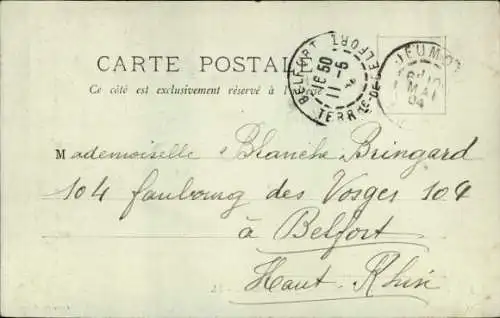 CARTE POSTALE
Ce côté est exclusivement réservé à l'
BELFORT
16 50
11 - 5
TERRRE DE BELFORT
JEUMONT
MAI
04
Mademoiselle Blanche Bringard
104 faubourg des Vosges 104
à Belfort
Haut-Rhin